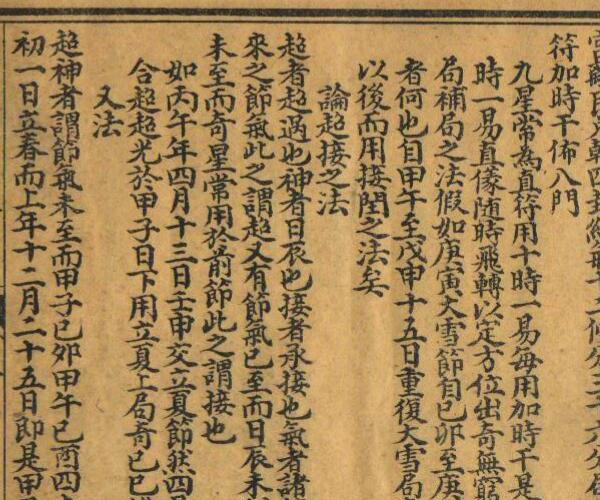 符加時干佈八門
九星常為直符用十時一易每用加時干是
時一易直儀随時飛轉以定方位出奇無窮
局補局之法假如庚寅大雪節自己卯至庚
者何也自甲午至戊申十五日重復大雪局
以後而用接閏之法矣
論超接之法
超者超過也神者日辰也接者承接也氣者諸
來之節氣此之謂超又有節氣已至而日辰未
未至而奇星常用於前節此之謂接也
如丙午年四月十三日壬申交立夏節然四月
合超超光於甲子日下用立夏上局奇已
又法
超神者謂節氣未至而甲子己夘甲午己酉四
初一日立春而上年十二月二十五日即是甲